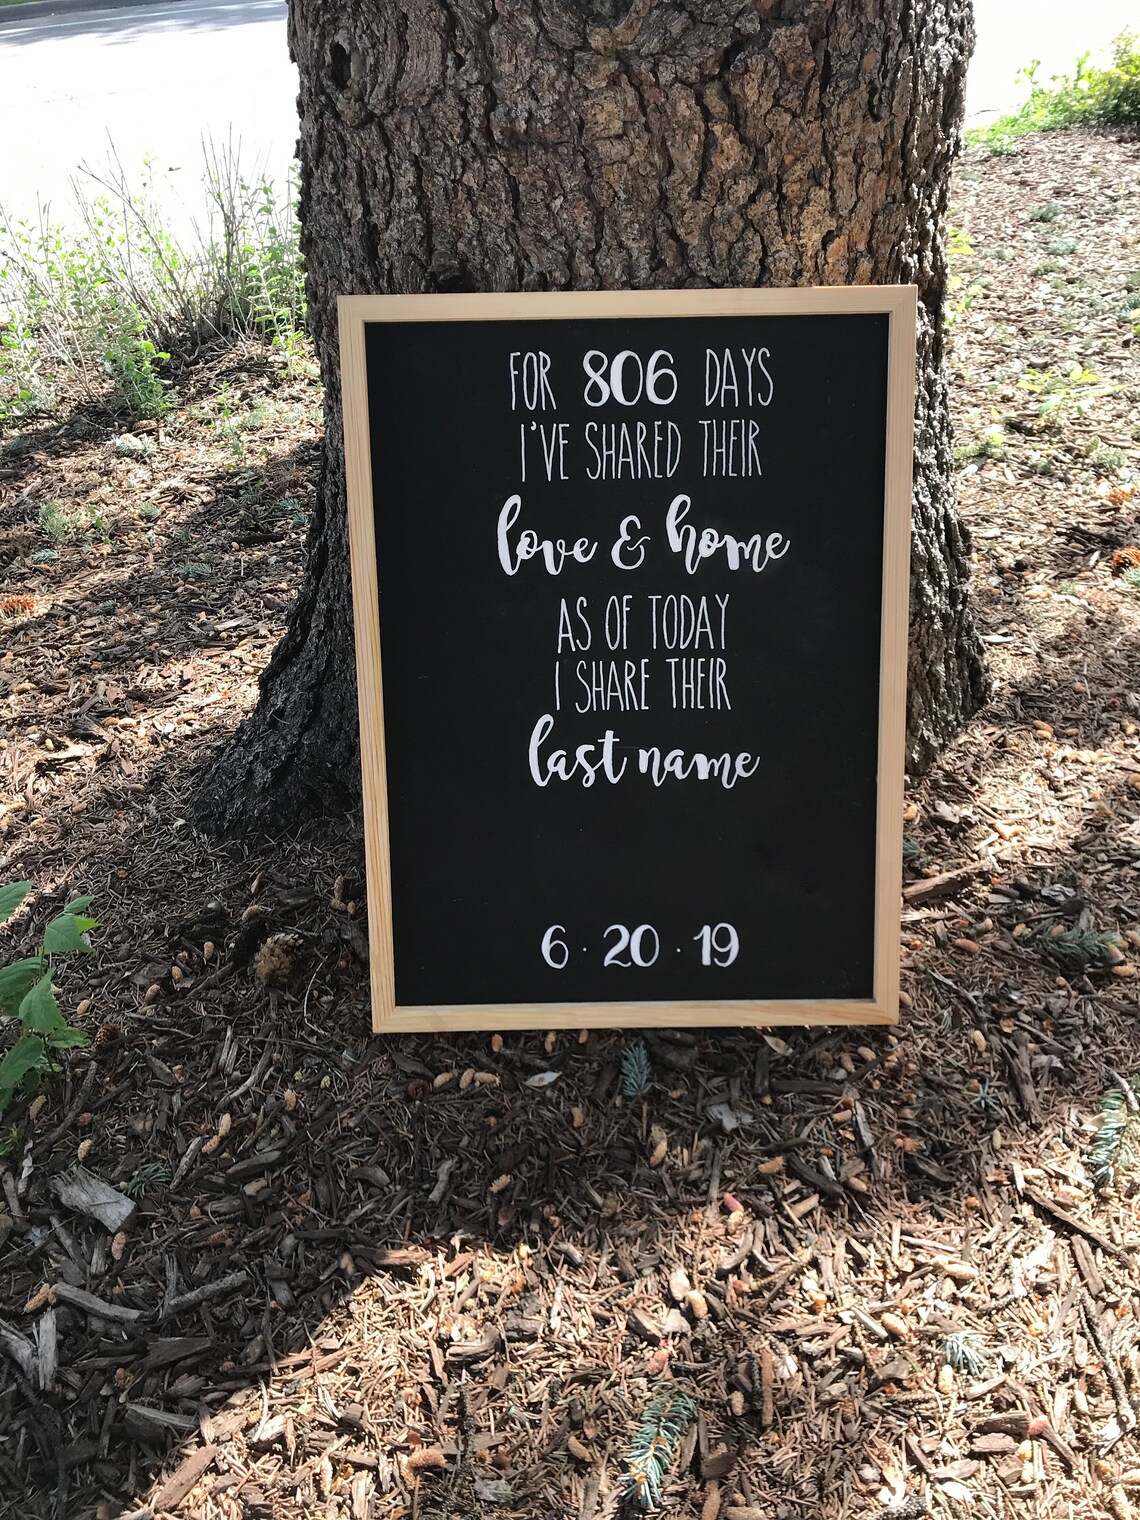 FOR 806 DAYS
I'VE SHARED THEIR
love & home
AS OF TODAY
I SHARE THEIR
last name
6 · 20 · 19